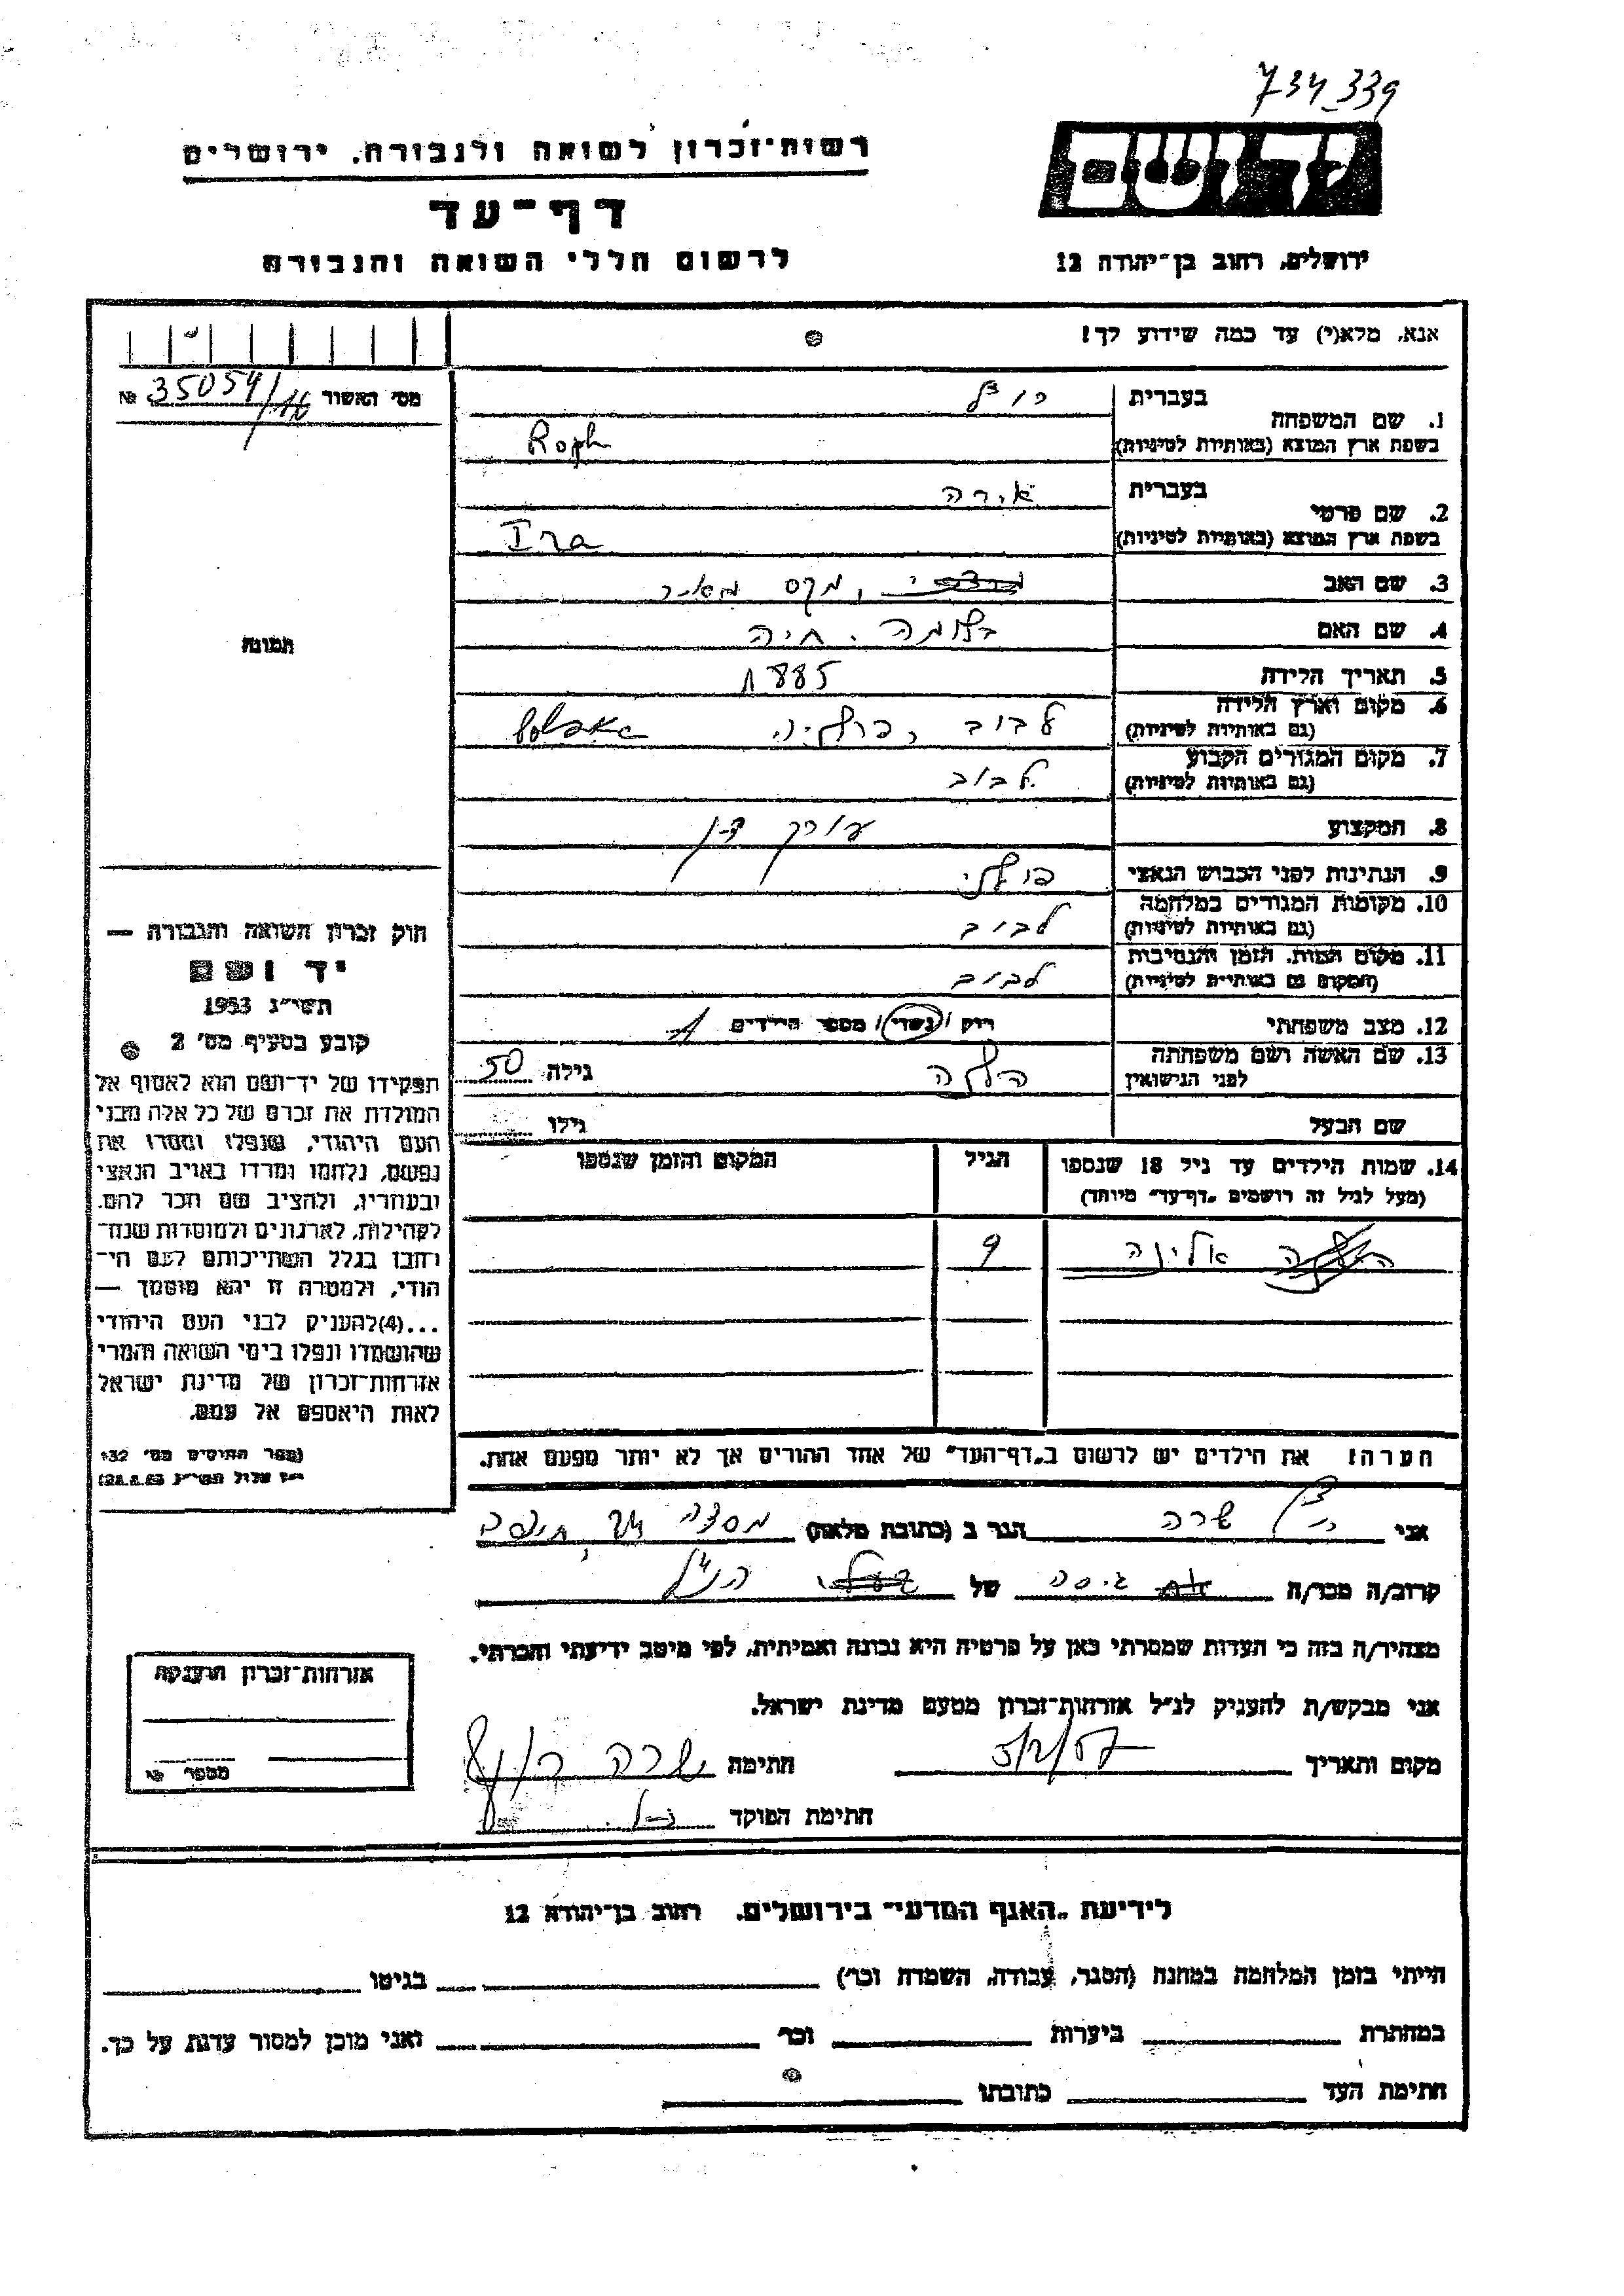 734_339
רשות־זכרון לשואה ולגבורה, ירושלים
דף־עד
לרשום חללי השואה והגבורה
יד ושם
ירושלים, רחוב בן־יהודה 12
אנא, מלא(י) עד כמה שידוע לך!
מס׳ האשור № 35054/16
תמונה
1. שם המשפחה
בעברית
בשפת ארץ המוצא (באותיות לטיניות)
2. שם פרטי
בעברית אירה
בשפת ארץ המוצא (באותיות לטיניות) Ira
3. שם האב מקס מאיר
4. שם האם חיה
5. תאריך הלידה 1885
6. מקום וארץ הלידה (גם באותיות לטיניות) לבוב, פולניה
7. מקום המגורים הקבוע (גם באותיות לטיניות) לבוב
8. המקצוע עורך דין
9. הנתינות לפני הכבוש הנאצי פולני
10. מקומות המגורים במלחמה (גם באותיות לטיניות) לבוב
11. מקום המות, הזמן והנסיבות (המקום גם באותיות לטיניות) לבוב
12. מצב משפחתי רוק / נשוי / מספר הילדים 1
13. שם האשה ושם משפחתה לפני הנישואין הלנה גילה 50
שם הבעל גילו
14. שמות הילדים עד גיל 18 שנספו (מעל לגיל זה רושמים „דף־עד״ מיוחד)
הגיל
המקום והזמן שנספו
אלינה 9
הערה! את הילדים יש לרשום ב„דף־העד״ של אחד ההורים אך לא יותר מפעם אחת.
חוק זכרון השואה והגבורה —
יד ושם
תשי״ג 1953
קובע בסעיף מס׳ 2
תפקידו של יד־ושם הוא לאסוף אל
המולדת את זכרם של כל אלה מבני
העם היהודי, שנפלו ומסרו את
נפשם, נלחמו ומרדו באויב הנאצי
ובעוזריו, ולהציב שם וזכר להם,
לקהילות, לארגונים ולמוסדות שנח־
רבו בגלל השתייכותם לעם הי־
הודי, ולמטרה זו יהא מוסמך —
...(4)להעניק לבני העם היהודי
שהושמדו ונפלו בימי השואה והמרי
אזרחות־זכרון של מדינת ישראל
לאות היאספם אל עמם.
(ספר החוקים מס׳ 132
י״ז אלול תשי״ג 28.8.53)
אני שרה הגר ב (כתובת מלאה) חיפה
קרוב/ה מכר/ה גיסה של הנ״ל
מצהיר/ה בזה כי העדות שמסרתי כאן על פרטיה היא נכונה ואמיתית, לפי מיטב ידיעתי והכרתי.
אני מבקש/ת להעניק לנ״ל אזרחות־זכרון מטעם מדינת ישראל.
מקום ותאריך 5/2/57 חתימה שרה
חתימת הפוקד
אזרחות־זכרון הוענקה
מספר №
לידיעת „האגף המדעי״ בירושלים, רחוב בן־יהודה 12
הייתי בזמן המלחמה במחנה (הסגר, עבודה, השמדה וכר׳) בגיטו
במחתרת ביערות וכר׳ ואני מוכן למסור עדות על כך.
חתימת העד כתובתו